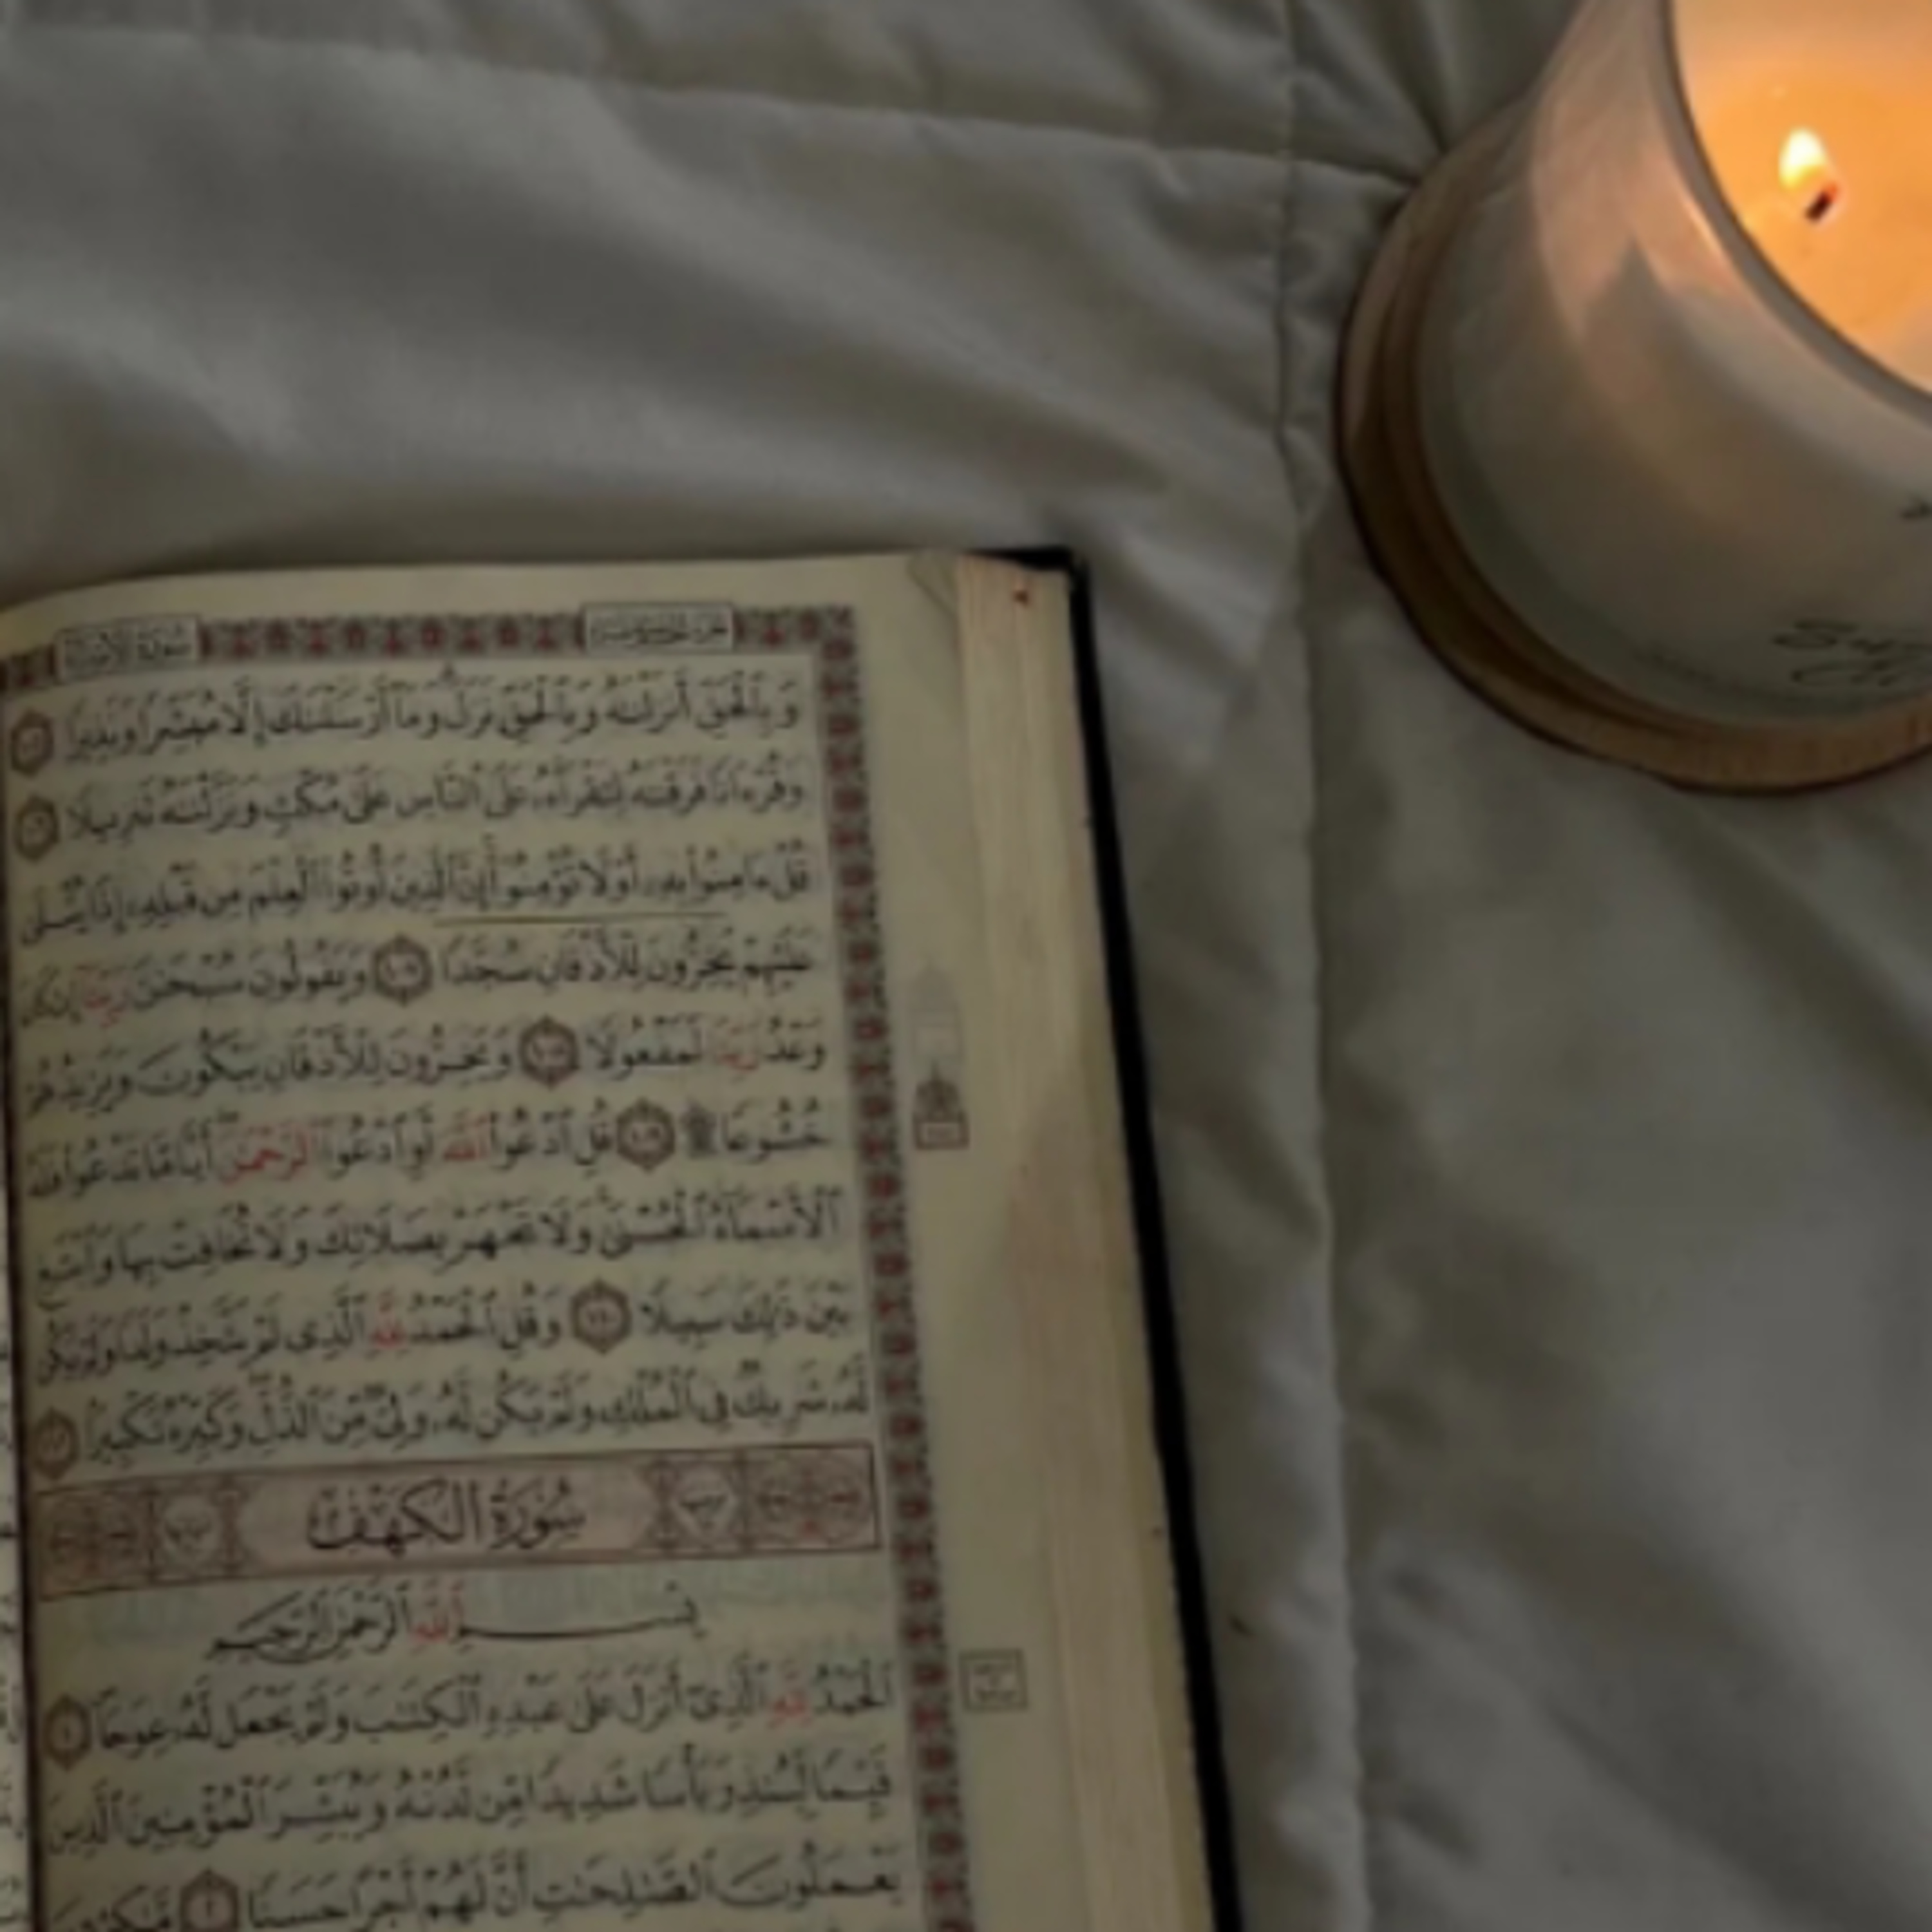 سُورَةُ الإِسْرَاءِ
وَبِٱلْحَقِّ أَنزَلْنَٰهُ وَبِٱلْحَقِّ نَزَلَ وَمَآ أَرْسَلْنَٰكَ إِلَّا مُبَشِّرًا وَنَذِيرًا ١٠٥
وَقُرْءَانًا فَرَقْنَٰهُ لِتَقْرَأَهُۥ عَلَى ٱلنَّاسِ عَلَىٰ مُكْثٍ وَنَزَّلْنَٰهُ تَنزِيلًا ١٠٦
قُلْ ءَامِنُوا۟ بِهِۦٓ أَوْ لَا تُؤْمِنُوٓا۟ إِنَّ ٱلَّذِينَ أُوتُوا۟ ٱلْعِلْمَ مِن قَبْلِهِۦٓ إِذَا يُتْلَىٰ
عَلَيْهِمْ يَخِرُّونَ لِلْأَذْقَانِ سُجَّدًا ١٠٧ وَيَقُولُونَ سُبْحَٰنَ رَبِّنَآ إِن كَانَ
وَعْدُ رَبِّنَا لَمَفْعُولًا ١٠٨ وَيَخِرُّونَ لِلْأَذْقَانِ يَبْكُونَ وَيَزِيدُهُمْ
خُشُوعًا ۩ ١٠٩ قُلِ ٱدْعُوا۟ ٱللَّهَ أَوِ ٱدْعُوا۟ ٱلرَّحْمَٰنَ أَيًّا مَّا تَدْعُوا۟ فَلَهُ
ٱلْأَسْمَآءُ ٱلْحُسْنَىٰ وَلَا تَجْهَرْ بِصَلَاتِكَ وَلَا تُخَافِتْ بِهَا وَٱبْتَغِ
بَيْنَ ذَٰلِكَ سَبِيلًا ١١٠ وَقُلِ ٱلْحَمْدُ لِلَّهِ ٱلَّذِى لَمْ يَتَّخِذْ وَلَدًا وَلَمْ يَكُن
لَّهُۥ شَرِيكٌ فِى ٱلْمُلْكِ وَلَمْ يَكُن لَّهُۥ وَلِىٌّ مِّنَ ٱلذُّلِّ وَكَبِّرْهُ تَكْبِيرًۢا ١١١
سُورَةُ الكَهْفِ
بِسْمِ ٱللَّهِ ٱلرَّحْمَٰنِ ٱلرَّحِيمِ
ٱلْحَمْدُ لِلَّهِ ٱلَّذِىٓ أَنزَلَ عَلَىٰ عَبْدِهِ ٱلْكِتَٰبَ وَلَمْ يَجْعَل لَّهُۥ عِوَجَا ١
قَيِّمًا لِّيُنذِرَ بَأْسًا شَدِيدًا مِّن لَّدُنْهُ وَيُبَشِّرَ ٱلْمُؤْمِنِينَ ٱلَّذِينَ
يَعْمَلُونَ ٱلصَّٰلِحَٰتِ أَنَّ لَهُمْ أَجْرًا حَسَنًا ٢ مَّٰكِثِينَ